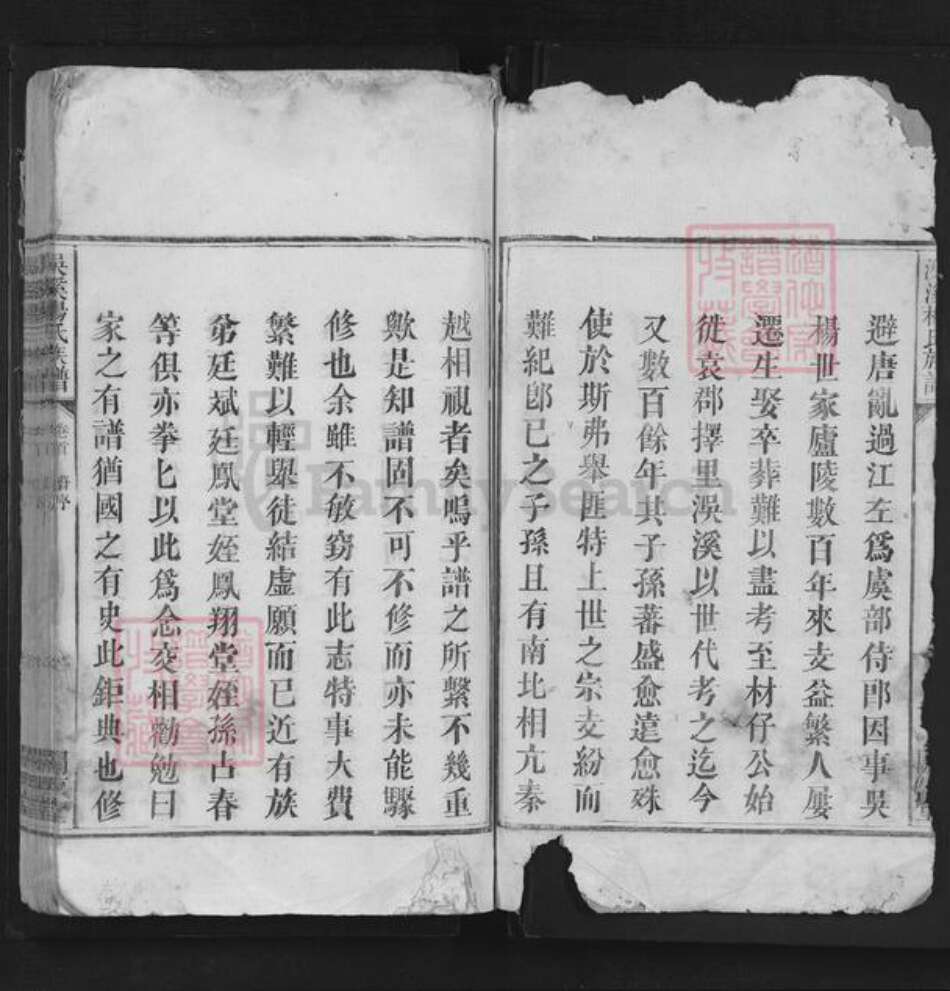 避唐亂過江左爲虞部侍郎因事吳
楊世家廬陵數百年來支益繁人屢
遷生娶卒葬難以盡考至材仔公始
徙袁郡擇里溪以世代考之迄今
又數百餘年其子孫蕃盛愈遠愈殊
使於斯弗舉匪特上世之宗支紛而
難紀卽已之子孫且有南北相亢秦
越相視者矣嗚乎譜之所繫不幾重
歟是知譜固不可不修而亦未能驟
修也余雖不敏竊有此志特事大費
繁難以輕舉徒結虛願而已近有族
弟廷斌廷鳳堂姪鳳翔堂姪孫占春
等俱亦拳匕以此爲念交相勸勉曰
家之有譜猶國之有史此鉅典也修
氏族譜
卷首
FamilySearch